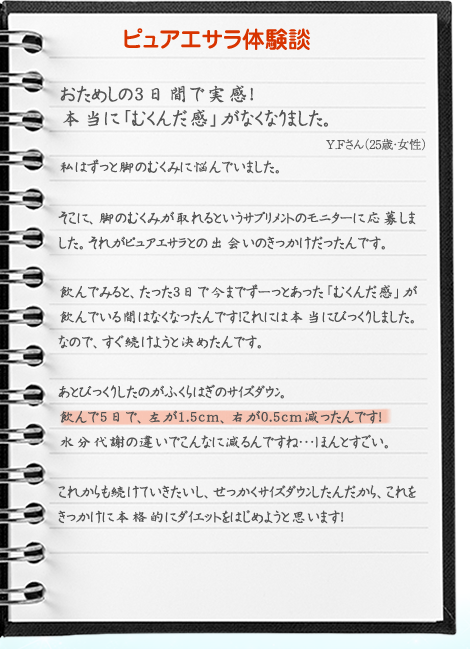 ピュアエサラ体験談
おためしの3日間で実感!
本当に「むくんだ感」がなくなりました。
Y.Fさん(25歳・女性)
私はずっと脚のむくみに悩んでいました。
そこに、脚のむくみが取れるというサプリメントのモニターに応募しま
した。それがピュアエサラとの出会いのきっかけだったんです。
飲んでみると、たった3日で今までずーっとあった「むくんだ感」が
飲んでいる間はなくなったんです!これには本当にびっくりしました。
なので、すぐ続けようと決めたんです。
あとびっくりしたのがふくらはぎのサイズダウン。
飲んで5日で、左が1.5cm、右が0.5cm減ったんです!
水分代謝の違いでこんなに減るんですね…ほんとすごい。
これからも続けていきたいし、せっかくサイズダウンしたんだから、これを
きっかけに本格的にダイエットをはじめようと思います!